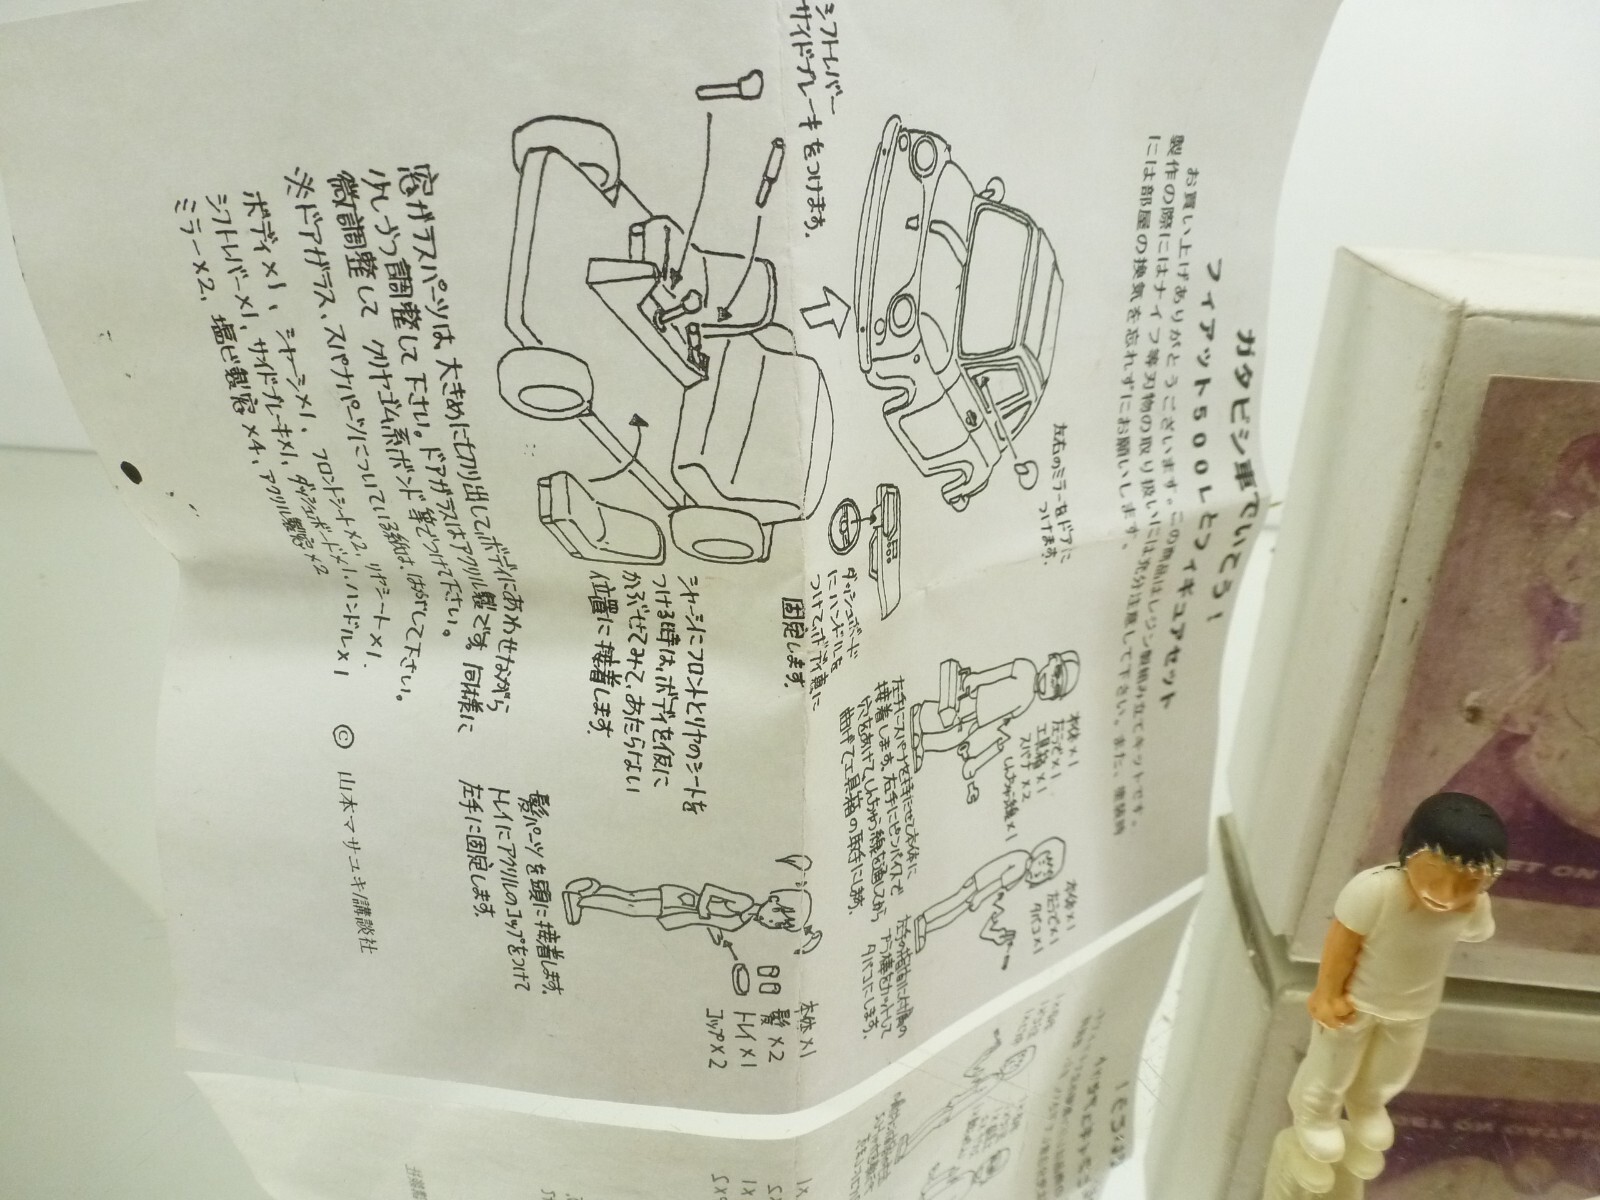 ガタピシ車でいこう!
フィアット500Lとフィギュアセット
お買い上げありがとうございます。この商品はレジン製組み立てキットです。
製作の際にはナイフ等刃物の取り扱いには充分注意して下さい。また、塗装時
には部屋の換気を忘れずにお願いします。
シフトレバー
サイドブレーキをつけます。
左右のミラーをドアに
つけます。
ダッシュボード
にハンドルを
つけてボディ裏に
固定します。
シャーシにフロントとリヤのシートを
つける時は、ボディを仮に
かぶせてみて、あたらない
位置に接着します。
窓ガラスパーツは大きめに切り出してボディにあわせながら
少しづつ調整して下さい。ドアガラスはアクリル製です。同様に
微調整して クリヤゴム系ボンド等でつけて下さい。
※ドアガラス、スパナパーツについている紙は、はがして下さい。
ボディ×1、シャーシ×1、フロントシート×2、リヤシート×1、
シフトレバー×1、サイドブレーキ×1、ダッシュボード×1、ハンドル×1
ミラー×2、塩ビ製窓×4、アクリル製窓×2
本体×1
左うで×1
工具箱×1
スパナ×2
しんちゅう線×1
左手にスパナをもたせて本体に
接着します。右手にピンバイスで
穴をあけてしんちゅう線を通してから
曲げて工具箱の取手にします。
本体×1
左うで×1
タバコ×1
プラ棒をカットして
タバコにします。
本体×1
髪×2
トレイ×1
コップ×2
髪パーツを頭に接着します。
トレイにアクリルのコップをつけて
左手に固定します。
© 山本マサユキ/講談社